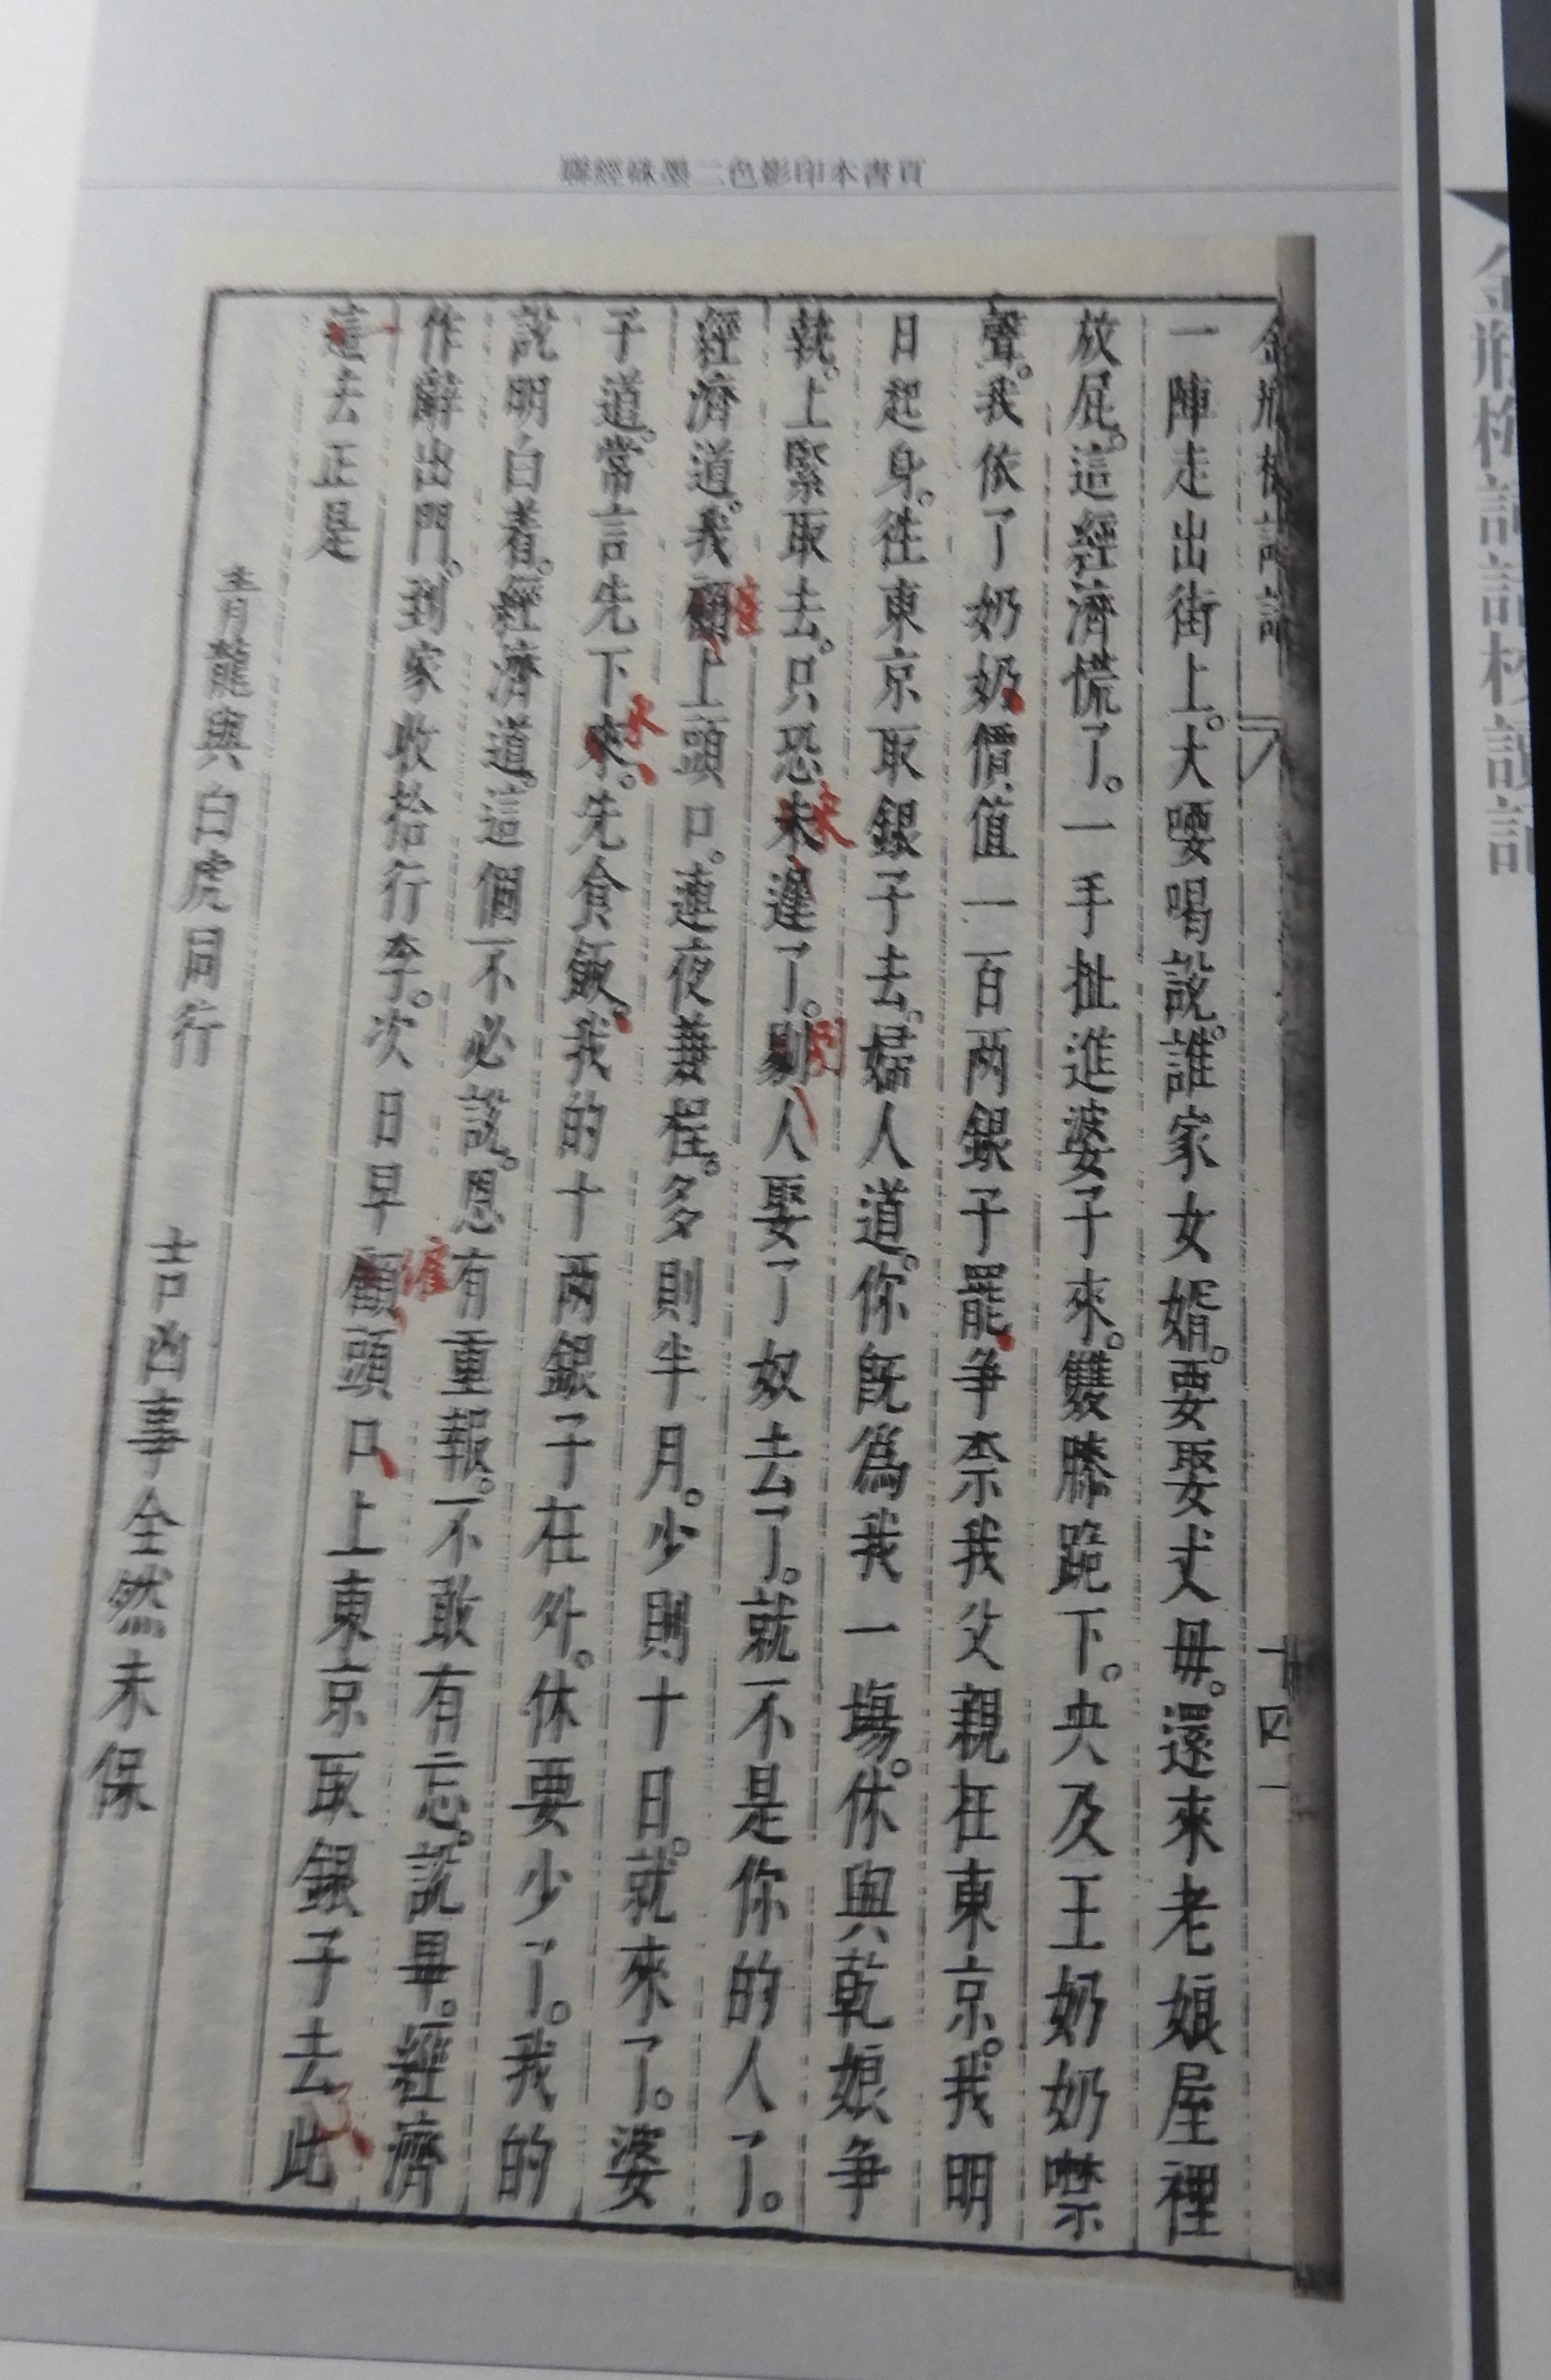 金瓶梅詞話校讀記
聯經朱墨二色影印本書頁
金瓶梅詞話
廿四
一陣走出街上。大嚘喝說。誰家女婿。要娶丈毋。還來老娘屋裡
放屁。這經濟慌了。一手扯進婆子來。雙膝跪下。央及王奶奶噤
聲。我依了奶奶價值一百両銀子罷爭柰我父親在東京。我明
日起身。徃東京取銀子去。婦人道。你旣爲我一塲。休與乾娘爭
執。上緊取去。只恐未遲了。剔人娶了奴去了。就不是你的人了。
來
別
經濟道。我顧上頭口。連夜蒹程。多則半月。少則十日。就來了。婆
雇
子道。常言先下來。先食飯。我的十両銀子在外。休要少了。我的
米
說明白着。經濟道。這個不必說。恩有重報。不敢有忘。說畢。經濟
作辭出門。到家收拾行李。次日早顧頭口上東京取銀子去此
雇
這去正是
青龍與白虎同行　吉凶事全然未保